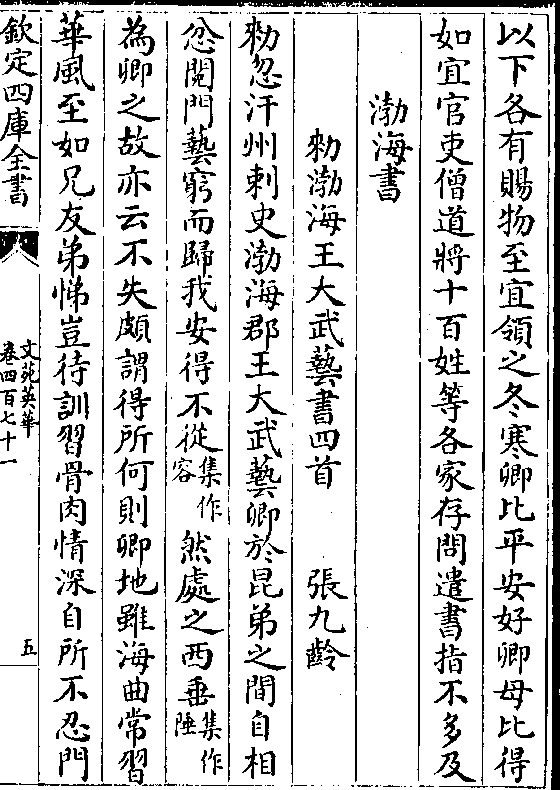 以下各有賜物至宜領之冬寒卿比平安好卿母比得
如宜官吏僧道將十百姓等各家存問遣書指不多及
渤海書
勑渤海王大武藝書四首 張九齡
勑忽汗州刺史渤海郡王大武藝卿於昆弟之間自相
忿鬩門藝窮而歸我安得不從集作容然處之西垂集作陲
為卿之故亦云不失頗謂得所何則卿地雖海曲常習
華風至如兄友弟悌豈待訓習骨肉情深自所不忍門
欽定四庫全書
文苑英華
卷四百七十一
五